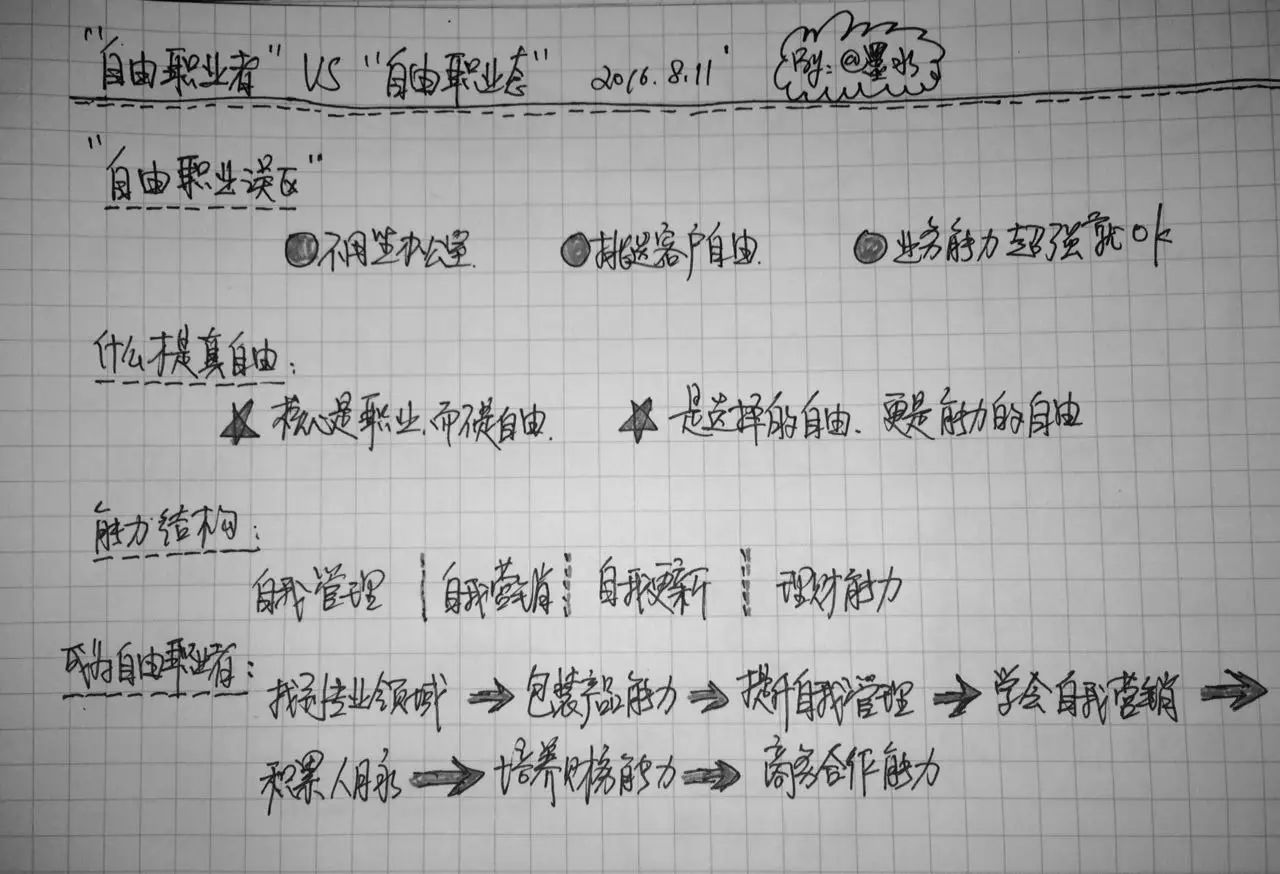 "自由职业者" VS "自由职业态" 2016.8.11 By:@墨水
"自由职业误区"
●不用坐办公室. ●挑选客户自由. ●业务能力超强就ok
什么才是真自由:
★ 核心是职业,而不是自由. ★ 是选择的自由.更是能力的自由
能力结构:
自我管理 | 自我营销 | 自我更新 | 理财能力
成为自由职业者:
找到专业领域 → 包装产品能力 → 提升自我管理 → 学会自我营销 →
积累人脉 → 培养财务能力 → 商务合作能力